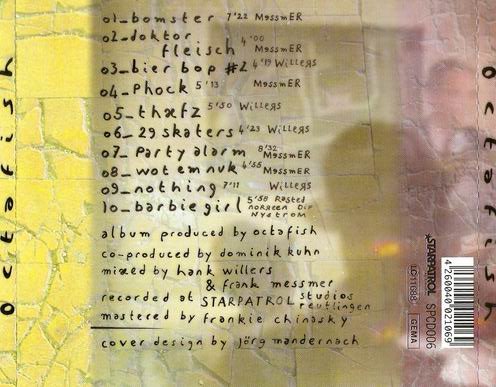 octafish
01_bomster 7'22 MessmER
02_doktor
fleisch 4'00 MessmER
03_bier bop #2 4'19 Willers
04_Phock 5'13 MessmER
05_thxfz 5'50 Willers
06_29 skaters 4'23 Willers
07_Party alarm 8'32 MessmER
08_wot em nuk 4'55 MessmER
09_nothing 7'11 Willers
10_barbie girl 5'58 Rasted
noRReen Dif
Nystrom
album produced by octafish
co-produced by dominik kuhn
mixed by hank willers
& frank messmer
recorded at STARPATROL studios
reutlingen
mastered by frankie chinasky
cover design by jörg mandernach
octafish
STARPATROL SPCD006
LC11688
GEMA
4260040021069